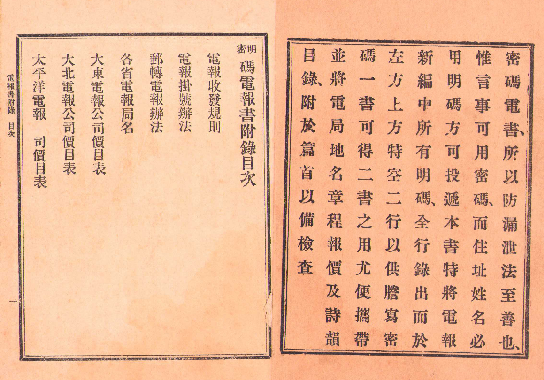 密碼電書、所以防漏泄法至善也、
惟言事可用密碼、而住址姓名必
用明碼方可投遞本書特將電報
新編中所有明碼、全行錄出而於
左方上方特空二行以供謄寫密
碼一書可得二書之用尤便攜帶
並將電局地名章程報價及詩韻
目錄、附於篇首以備檢查
明密碼電報書附錄目次
電報收發規則
電報掛號辦法
郵轉電報辦法
各省電報局名
大東電報公司價目表
大北電報公司價目表
太平洋電報 司價目表
電報書附錄 目次
一